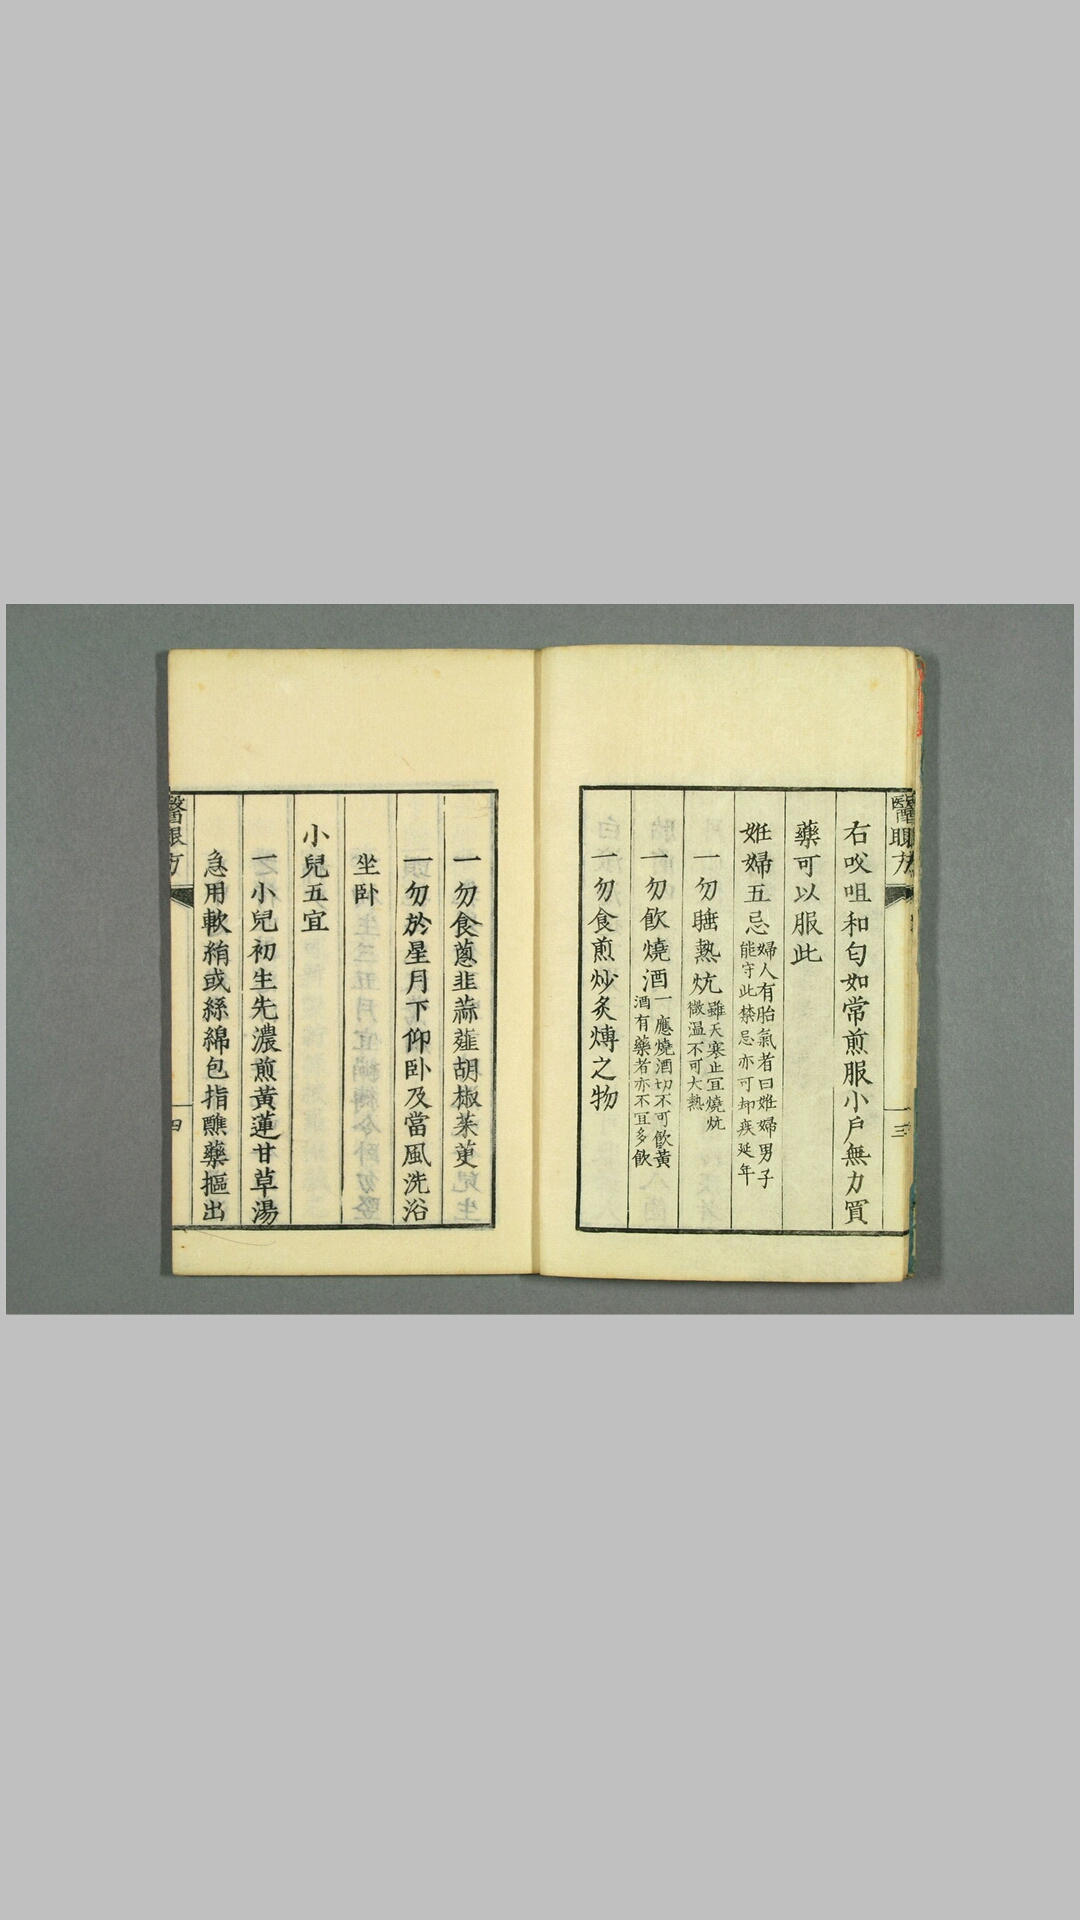 醫眼方
三
右㕮咀和勻如常煎服小戶無力買
藥可以服此
姙婦五忌婦人有胎氣者曰姙婦男子能守此禁忌亦可却疾延年
一勿睡熱炕雖天寒止宜燒炕微溫不可大熱
一勿飲燒酒一應燒酒切不可飲黃酒有藥者亦不宜多飲
一勿食煎炒炙煿之物
一勿食蔥韭蒜薤胡椒茱萸
一勿於星月下仰卧及當風洗浴
坐卧
小兒五宜
一小兒初生先濃煎黃蓮甘草湯
急用軟絹或絲綿包指蘸藥摳出
醫眼方
四